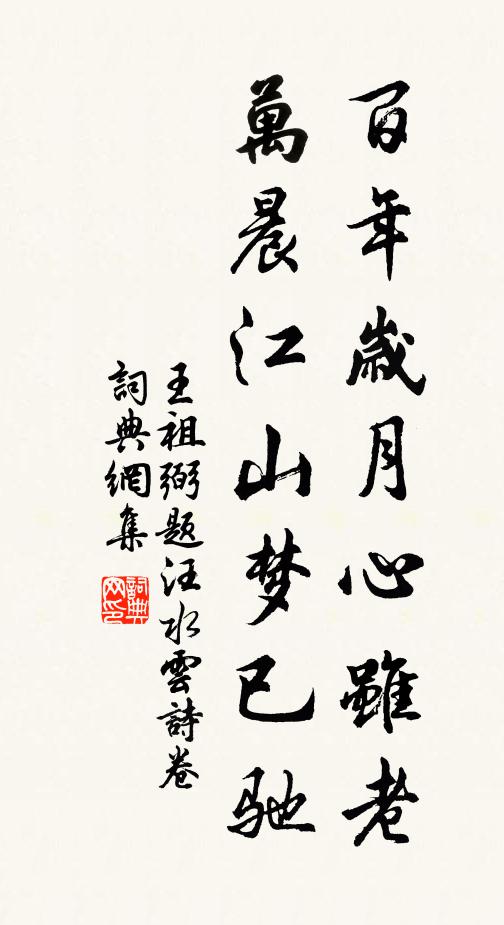 百年歲月心雖老
萬晨江山梦已馳
王祖弼題汪水雲詩卷
詞典網集
詞典
网印